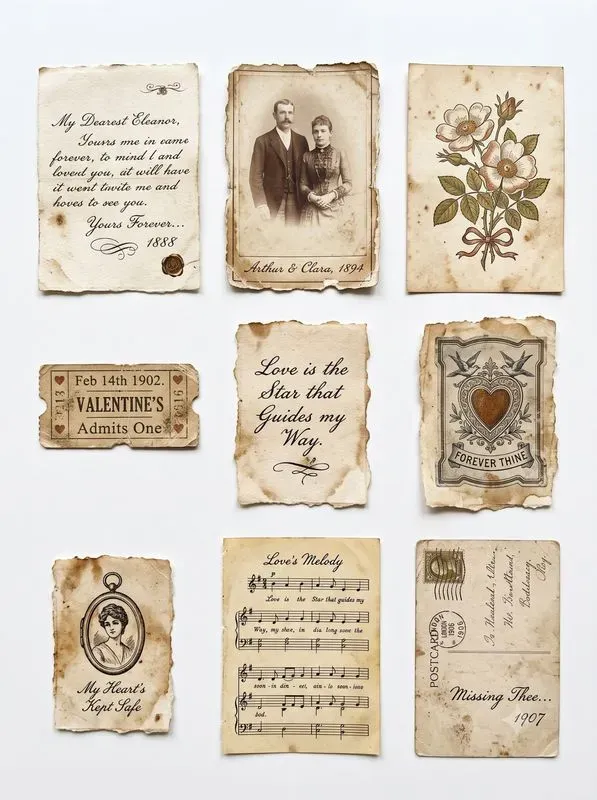 My Dearest Eleanor,
Yours me in came
forever, to mind l and
loved you, at will have
it went tnvite me and
hoves to see you.
Yours Forever...
1888
Arthur & Clara, 1894
Feb 14th 1902.
VALENTINE'S
Admits One
Love is the
Star that
Guides my
Way.
FOREVER THINE
My Heart's
Kept Safe
Love's Melody
P
Love is the Star that guides my
Way, my shae, in dia long sone the
soon-in din - ext, ain-lo soon-ions
bod.
POSTCARD
LONDON
1906
Missing Thee...
1907